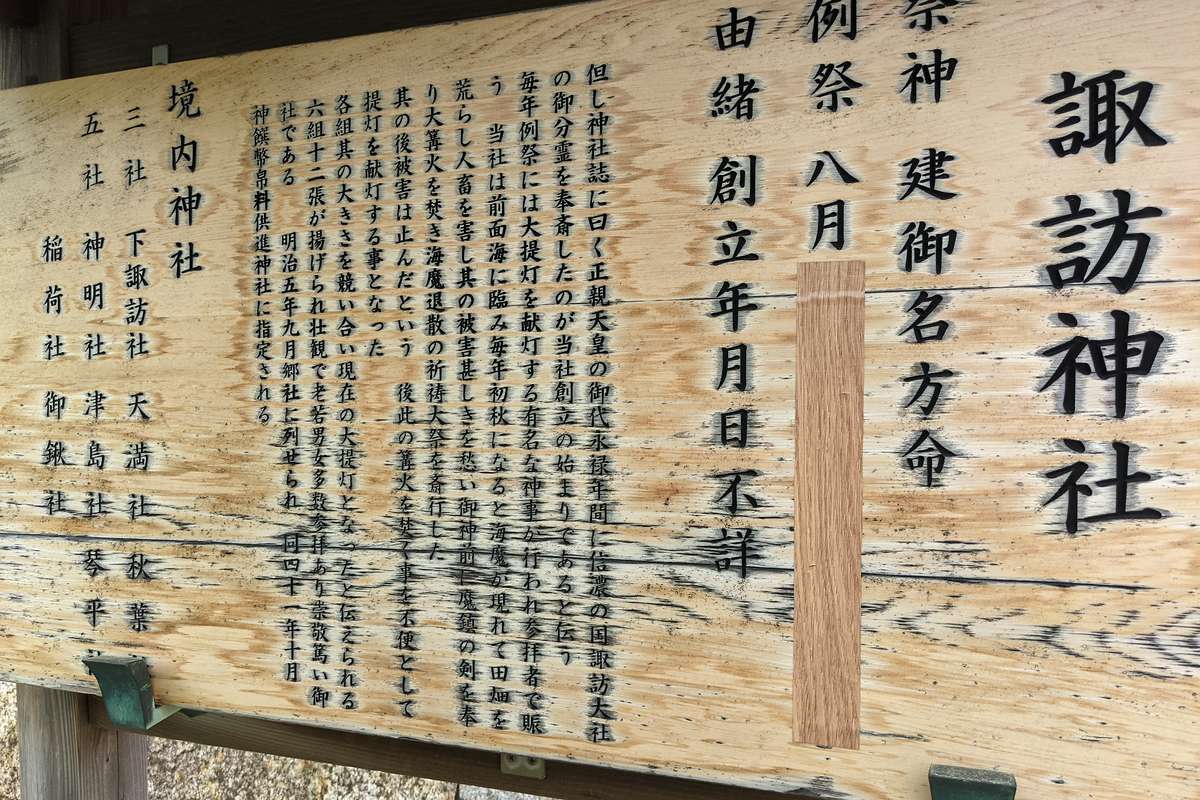 諏訪神社
祭神 建御名方命
例祭 八月
由緒 創立年月日不詳
但し神社誌に曰く正親天皇の御代永禄年間に信濃の国諏訪大社
の御分霊を奉斎したのが当社創立の始まりであると伝う
毎年例祭には大提灯を献灯する有名な神事が行われ参拝者で賑
う 当社は前面海に臨み毎年初秋になると海魔が現れて田畑を
荒らし人畜を害し其の被害甚しきを愁い御神前に魔鎮の剣を奉
り大篝火を焚き海魔退散の祈祷大祭を斎行した
其の後被害は止んだという 後此の篝火を焚く事を不便として
提灯を献灯する事となった
各組其の大きさを競い合い現在の大提灯となったと伝えられる
六組十二張が揚げられ壮観で老若男女多数参拝あり崇敬篤い御
社である 明治五年九月郷社に列せられ 同四十一年十月
神饌幣帛料供進神社に指定される
境内神社
三社 下諏訪社 天満社 秋葉
五社 神明社 津島社 琴平
稲荷社 御鍬社